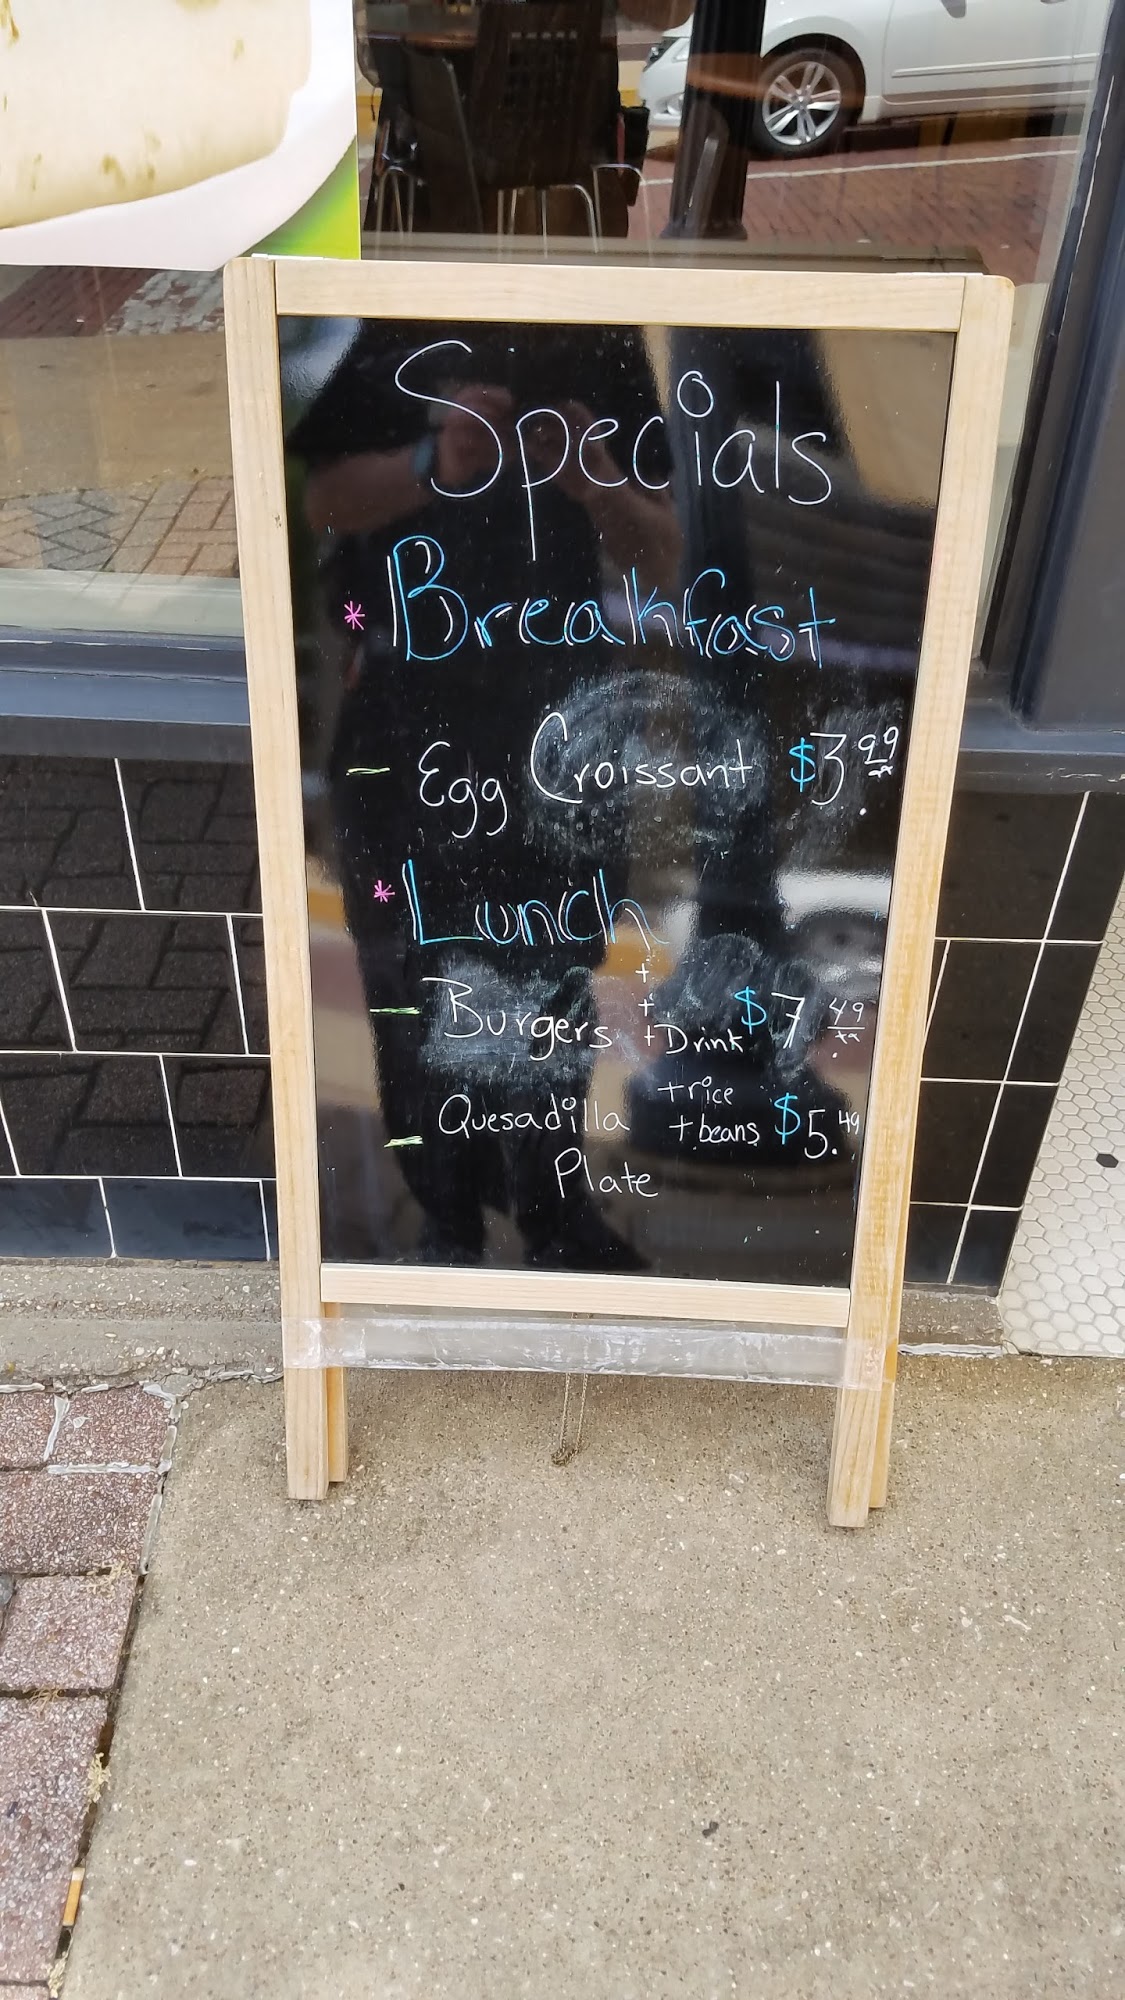 Specials
* Breakfast
- Egg Croissant $3.99
* Lunch
+
+
- Burgers + Drink $7.49
+ rice
- Quesadilla + beans $5.49
Plate